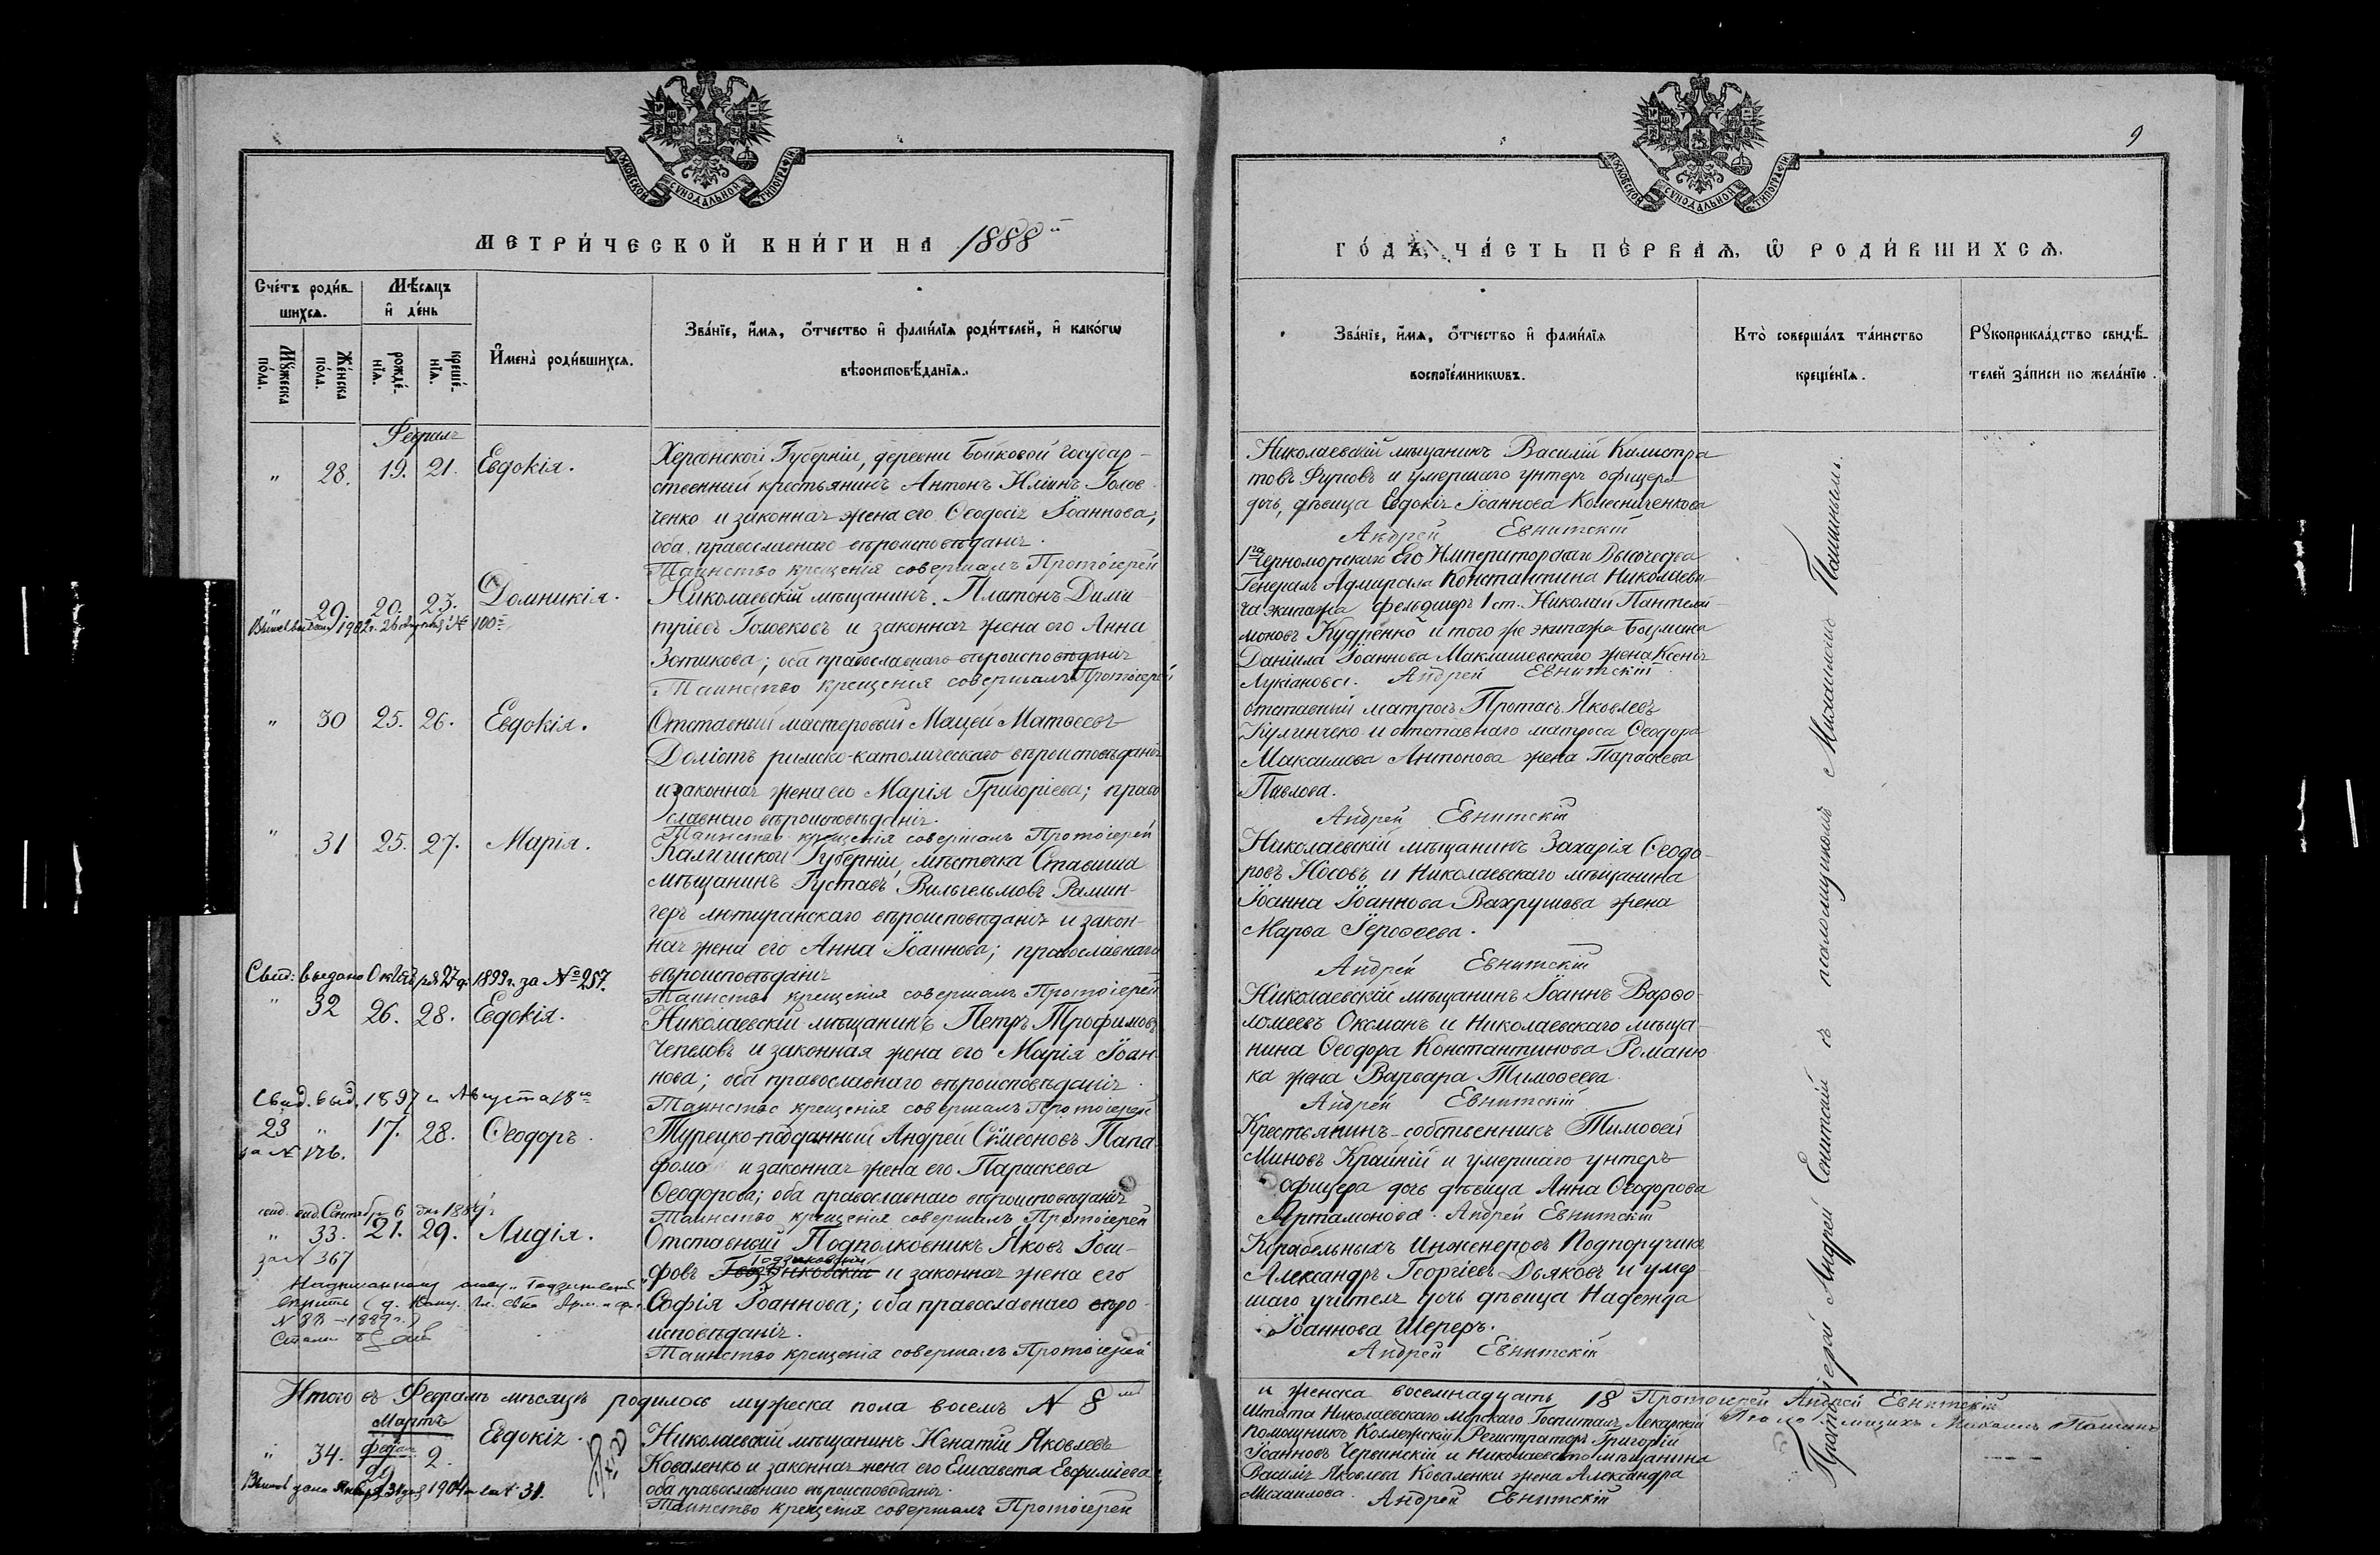 МОСКОВСКОЙ СѴНОДАЛЬНОЙ ТИПОГРАФІИ
МЕТРИ́ЧЕСКОЙ КНИ́ГИ НА 1888й
Сче́тъ роди́в
шихсѧ.
Мѣ́сѧцъ
и҆ де́нь
Мꙋ́жеска
по́ла.
Же́нска
по́ла.
рожде́-
нїѧ.
креще́-
нїѧ.
И҆мена̀ роди́вшихсѧ.
Зва́нїе, и҆́мѧ, ѻ҆́тчество и҆ фами́лїѧ роди́телей, и҆ како́гѡ
вѣроисповѣ́данїѧ.
Февраль
" 28. 19. 21. Евдокія.
Херсонской Губерніи, деревни Бойковой государ-
ственный крестьянинъ Антонъ Иліинъ Голов
ченко и законная жена его Ѳеодосія Іоаннова;
оба православнаго вѣроисповѣданія.
Таинство крещенія совершалъ Протоіерей
" 29. 20. 23. Домникія.
1902 г. 100
Николаевскій мѣщанинъ Платонъ Дими
тріевъ Головковъ и законная жена его Анна
Зотикова; оба православнаго вѣроисповѣданія
Таинство крещенія совершалъ Протоіерей
" 30 25. 26. Евдокія.
Отставный мастеровый Мацей Матѳеевъ
Доліотъ римско-католическаго вѣроисповѣданія
и законная жена его Марія Григоріева; право
славнаго вѣроисповѣданія.
Таинство крещенія совершалъ Протоіерей
" 31 25. 27. Марія.
Калишской Губерніи, мѣстечка Ставиша
мѣщанинъ Густавъ Вильгельмовъ Рамин-
геръ лютиранскаго вѣроисповѣданія и закон-
ная жена его Анна Іоаннова; православнаго
вѣроисповѣданія
Таинство крещенія совершалъ Протоіерей
Свид: выдано Октября 27 д. 1899 г. за № 257.
" 32 26. 28. Евдокія.
Николаевскій мѣщанинъ Петръ Трофимовъ
Чепеловъ и законная жена его Марія Іоан
нова; оба православнаго вѣроисповѣданія.
Таинство крещенія совершалъ Протоіерей
Свид. выд. 1897 г. Августа 18го
23 " 17. 28. Ѳеодоръ.
за № 176.
Турецко-подданный Андрей Сѵмеоновъ Папа
фома и законная жена его Параскева
Ѳеодорова; оба православнаго вѣроисповѣданія
Таинство крещенія совершалъ Протоіерей
свид. выд. Сентября 6 дня
" 33. 21. 29. Лидія.
за № 367
Отставный Подполковникъ Яковъ Іоси-
фовъ и законная жена его
Софія Іоаннова; оба православнаго вѣро-
исповѣданія.
Таинство крещенія совершалъ Протоіерей
Итого въ Февралѣ мѣсяцѣ родилось мужеска пола восемь № 8
Мартъ
" 34. 29 2. Евдокія.
1904 31.
Николаевскій мѣщанинъ Игнатій Яковлевъ
Коваленко и законная жена его Елисавета Евфиміева;
оба православнаго вѣроисповѣданія.
Таинство крещенія совершалъ Протоіерей
МОСКОВСКОЙ СѴНОДАЛЬНОЙ ТИПОГРАФІИ
9
ГО́ДЪ, ЧА́СТЬ ПЕ́РВАѦ, Ѽ РОДИ́ВШИХСѦ.
Зва́нїе, и҆́мѧ, ѻ҆́тчество и҆ фами́лїѧ
воспрїе́мникѡвъ.
Кто̀ соверша́лъ та́инство
креще́нїѧ.
Рꙋкоприкла́дство свидѣ́-
телей за́писи по жела́нїю.
Николаевскій мѣщанинъ Василій Калистра
товъ Фурсовъ и умершаго унтеръ офицера
дочь, дѣвица Евдокія Іоаннова Колесниченкова
Андрей Евнитскій
1го Черноморскаго Его Императорскаго Высочества
Генералъ Адмирала Константина Николаеви
ча экипажа фельдшеръ 1 ст. Николай Пантелей
моновъ Кудренко и того же экипажа Боцмана
Даніила Іоаннова Маклишевскаго жена Ксенія
Лукіанова. Андрей Евнитскій
Отставный матросъ Протасъ Яковлевъ
Кулинченко и отставнаго матроса Ѳеодора
Максимова Антонова жена Параскева
Павлова.
Андрей Евнитскій
Николаевскій мѣщанинъ Захарія Ѳеодо-
ровъ Носовъ и Николаевскаго мѣщанина
Іоанна Іоаннова Вахрушова жена
Марѳа Іероѳеева.
Андрей Евнитскій
Николаевскій мѣщанинъ Іоаннъ Варѳо-
ломеевъ Оксманъ и Николаевскаго мѣща-
нина Ѳеодора Константинова Романю
ка жена Варвара Тимоѳеева.
Андрей Евнитскій
Крестьянинъ-собственникъ Тимоѳей
Миновъ Крайній и умершаго унтеръ
офицера дочь дѣвица Анна Ѳеодорова
Артамонова. Андрей Евнитскій
Корабельныхъ Инженеровъ Подпоручикъ
Александръ Георгіевъ Дьяковъ и умер-
шаго учителя дочь дѣвица Надежда
Іоаннова Шереръ.
Андрей Евнитскій
и женска восемнадцать 18 Протоіерей Андрей Евнитскій
Штата Николаевскаго Морскаго Госпиталя Лекарскій
помощникъ Коллежскій Регистраторъ Григорій
Іоанновъ Червинскій и Николаевскаго мѣщанина
Василія Яковлева Коваленки жена Александра
Михаилова. Андрей Евнитскій
Протоіерей Андрей Евнитскій съ псаломщикомъ Михаиломъ